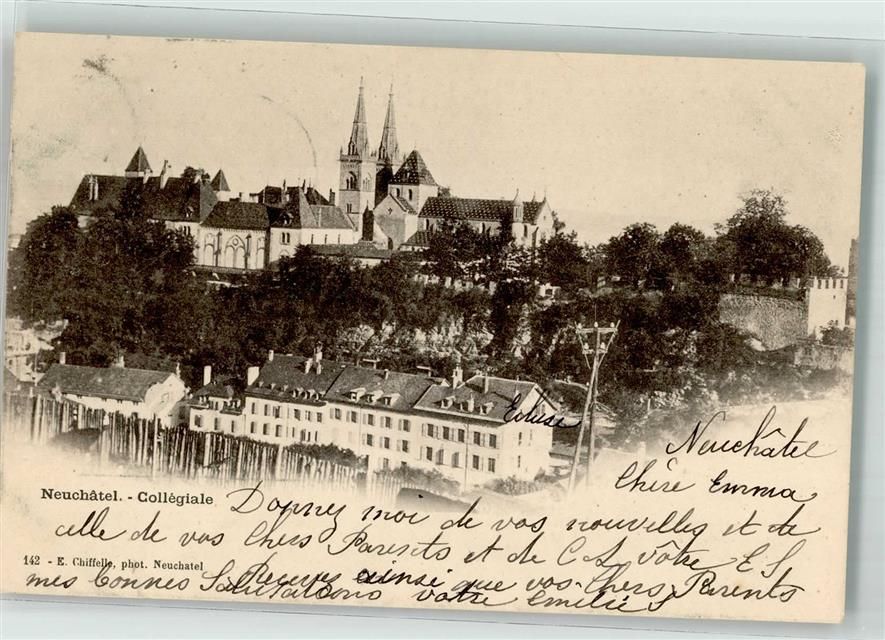 Ecluse
Neuchâtel
Chère Emma
Neuchâtel. - Collégiale
Donnez moi de vos nouvelles et de
celle de vos Chers Parents et de C.S. vôtre E.S.
142 - E. Chiffelle, phot. Neuchatel
Recevez ainsi que vos Chers Parents
mes bonnes Salutations votre Emilie S